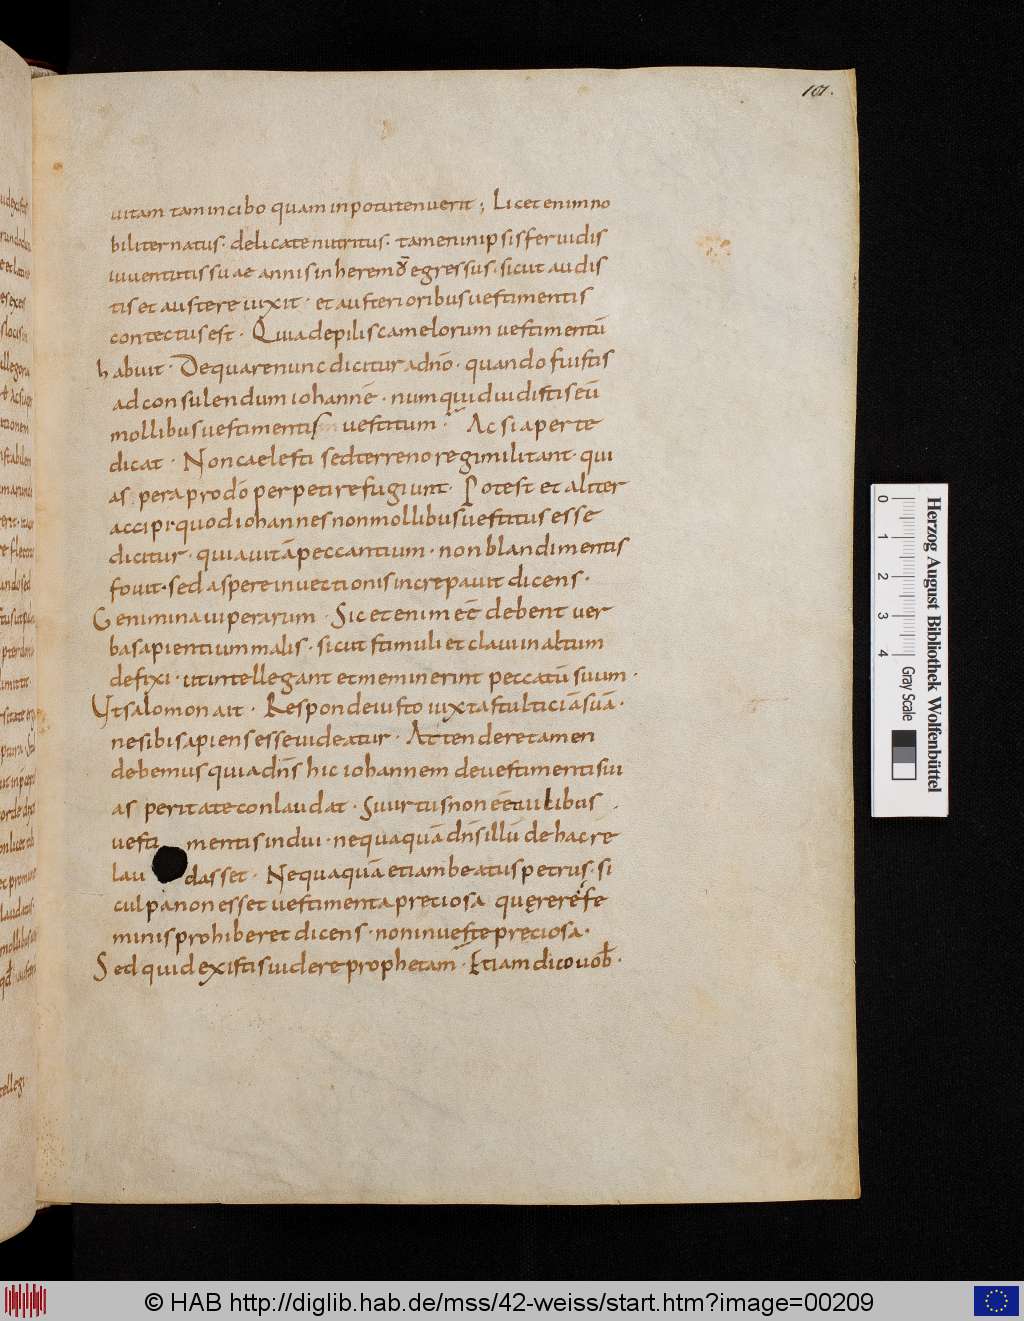 101.
uitam tam in cibo quam in potu tenuerit ; Licet enim no
biliter natus · delicate nutritus · tamen in ipsis feruidis
iuuentutis suae annis in heremū egressus · sicut audis
tis et austere uixit · et austerioribus uestimentis
contectus est · Quia de pilis camelorum uestimentū
habuit · De quare nunc dicitur a dn̄o · quando fuistis
ad consulendum iohannē · numquid uidistis eū
mollibus uestimentis uestitum · Ac si aperte
dicat · Non caelesti sed terreno regi militant · qui
aspera pro dō perpeti refugiunt · Potest et aliter
accipi quod iohannes non mollibus uestitus esse
dicitur · quia uitā peccantium · non blandimentis
fouit · sed aspere inuectionis increpauit dicens ·
Genimina uiperarum · Sic etenim eē debent uer
ba sapientium malis · sicut stimuli et claui in altum
defixi · ut intellegant et meminerint peccatū suum ·
Ut salomon ait · Responde iusto iuxta stulticiā suā ·
ne sibi sapiens esse uideatur · Attendere tamen
debemus quia dn̄s hic iohannem de uestimenti sui
asperitate conlaudat · Si uirtus non eēt uilibus
uesti mentis indui · nequaquā dn̄s illū de hac re
lau dasset · Nequaquā etiam beatus petrus · si
culpa non esset uestimenta preciosa quęrere fe
minis prohiberet dicens · non in ueste preciosa ·
Sed quid existis uidere prophetam · Etiam dico uob̄ ·
0 1 2 3 4
Gray Scale
Herzog August Bibliothek Wolfenbüttel
© HAB http://diglib.hab.de/mss/42-weiss/start.htm?image=00209